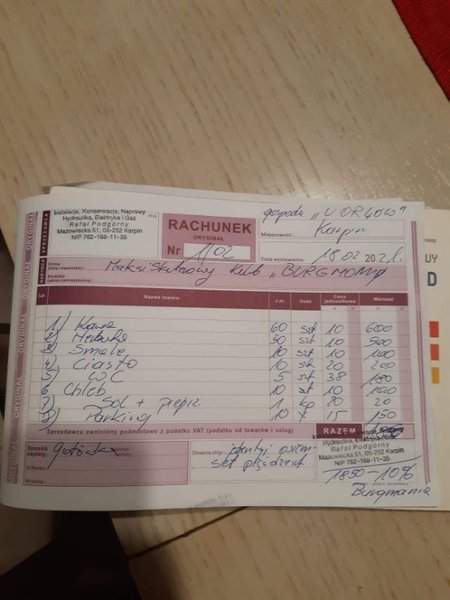 Instalacje, Konserwacje, Naprawy
Hydraulika, Elektryka i Gaz
Rafał Podgórny
Mazowiecka 51, 05-252 Karpin
NIP 762-166-11-35
ORYGINAŁ
SPRZEDAWCA
RACHUNEK
ORYGINAŁ
Nr 1/02
gospoda „U ORŁÓW"
Miejscowość: Karpin
Data wystawienia: 18 02 202
Maksi Skuterowy Klub „BURGMANIA"
Lp. Nazwa towaru J.m. Ilość Cena jednostkowa Wartość
1) Kawa 60 szt 10 600
2) Herbata 50 szt 10 500
3) Smalec 10 szt 10 100
4) Ciasto 10 szt 20 200
5) WC 5 szt 38
6) Chleb 10 szt 10
7) Sól + pieprz 1 kg 20
8) Parking 10 x 15 150
Sprzedawca zwolniony podmiotowo z podatku VAT (podatku od towarów i usług)
RAZEM
Sposób zapłaty: gotówka
Słownie złotych:
Hydraulika, Elektryka i Gaz
Rafał Podgórny
Mazowiecka 51, 05-252 Karpin
NIP 762-166-11-35
1850-10%
Burgmania